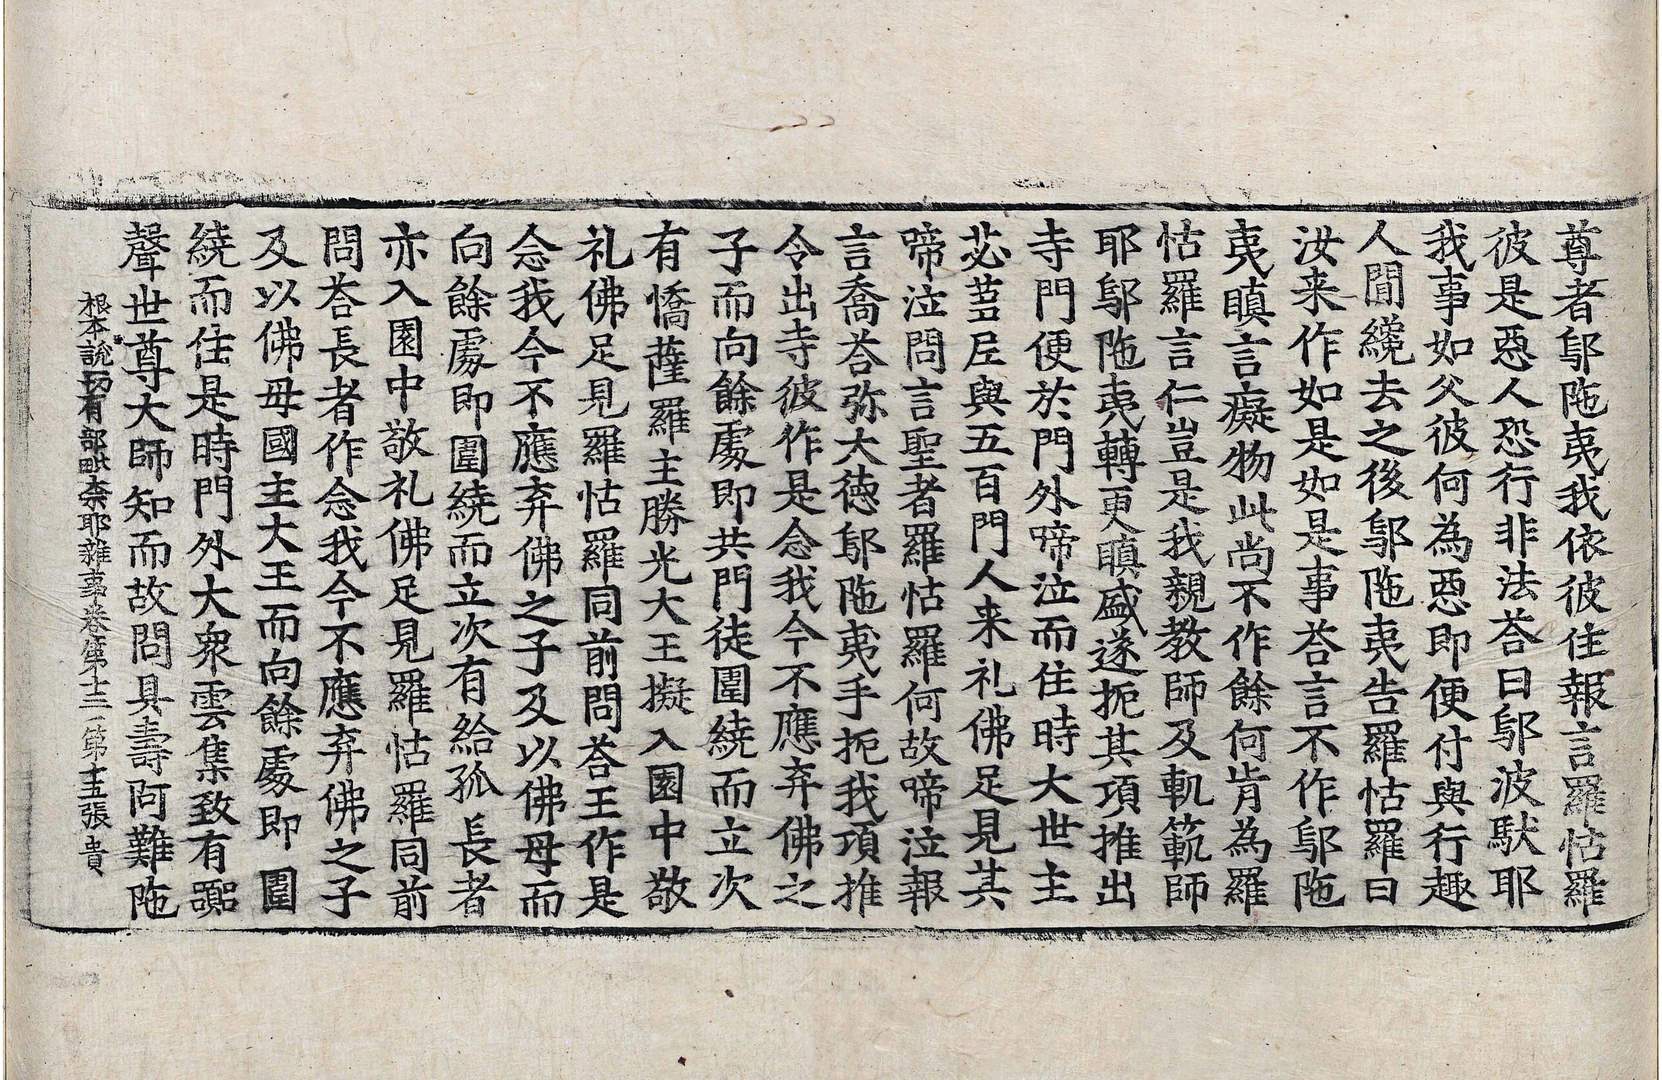 尊者鄔陁夷我依彼住報言羅怙羅
彼是惡人恐行非法荅曰鄔波馱耶
我事如父彼何為惡即便付與行趣
人間纔去之後鄔陁夷告羅怙羅曰
汝来作如是如是事荅言不作鄔陁
夷瞋言癡物此尚不作餘何肯為羅
怙羅言仁豈是我親教師及軌範師
耶鄔陁夷轉更瞋盛遂扼其項推出
寺門便於門外啼泣而住時大世主
苾芻尼與五百門人来礼佛足見其
啼泣問言聖者羅怙羅何故啼泣報
言喬荅弥大德鄔陁夷手扼我項推
令出寺彼作是念我今不應弃佛之
子而向餘處即共門徒圍繞而立次
有憍薩羅主勝光大王擬入園中敬
礼佛足見羅怙羅同前問荅王作是
念我今不應弃佛之子及以佛母而
向餘處即圍繞而立次有給孤長者
亦入園中敬礼佛足見羅怙羅同前
問荅長者作念我今不應弃佛之子
及以佛母國主大王而向餘處即圍
繞而住是時門外大衆雲集致有嚻
聲世尊大師知而故問具壽阿難陁
根本說一切有部毗奈耶雜事卷第十三 第十五張 貴